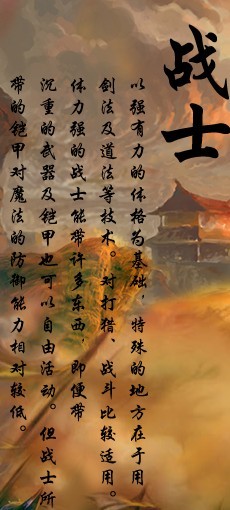 战士
以强有力的体格为基础，特殊的地方在于用
剑法及道法等技术。对打猎、战斗比较适用。
体力强的战士能带许多东西，即使带
沉重的武器及铠甲也可以自由活动。但战士所
带的铠甲对魔法的防御能力相对较低。